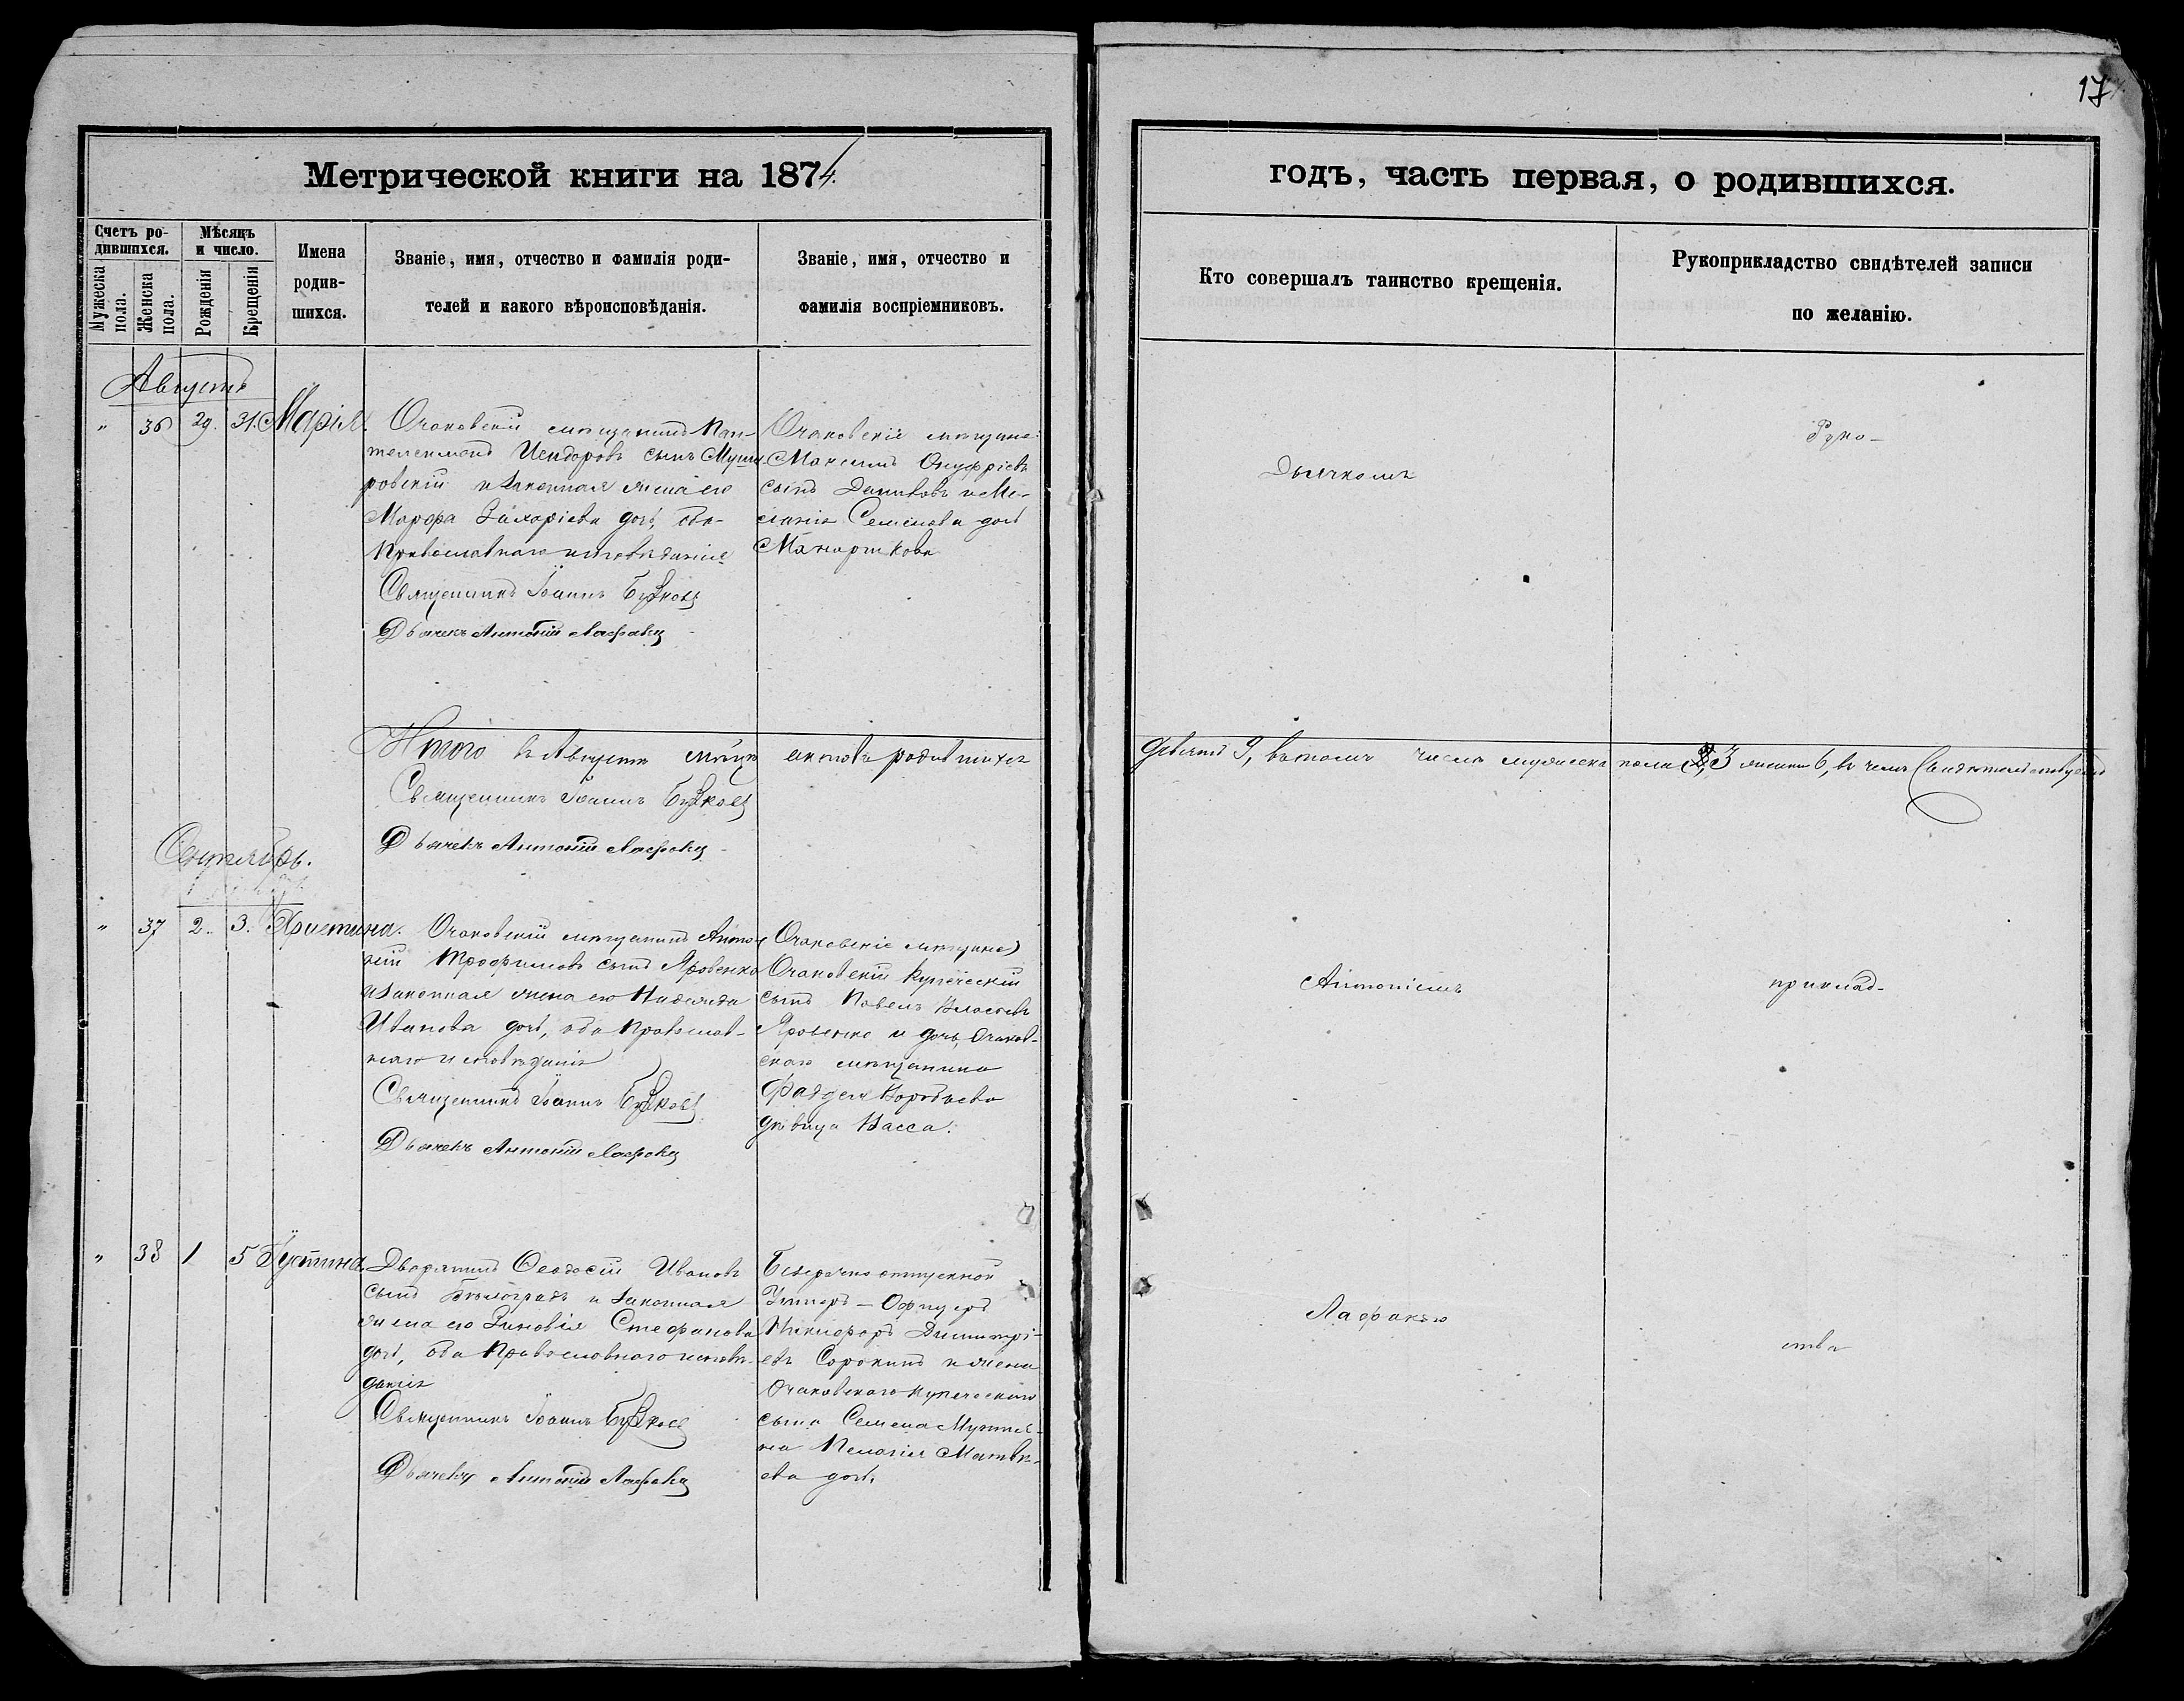 17
Метрической книги на 1874.
годъ, часть первая, о родившихся.
Счетъ ро-
дившихся.
Мужеска пола.
Женска пола.
Мѣсяцъ
и число.
Рожденія
Крещенія
Имена
родив-
шихся.
Званіе, имя, отчество и фамилія роди-
телей и какого вѣроисповѣданія.
Званіе, имя, отчество и
фамилія воспріемниковъ.
Кто совершалъ таинство крещенія.
Рукоприкладство свидѣтелей записи
по желанію.
Августъ
" 36 29. 31. Марія.
Очаковскій мѣщанинъ Пан-
телеимонъ Исидоровъ сынъ
ровскій и законная жена его
Марфа Захаріева дочь, оба
Православнаго исповѣданія
Священникъ Іоаннъ
Дьячекъ Антоній Лафакы
Очаковскіе мѣщане:
Максимъ Онуфріевъ
сынъ Даниловъ и Ме-
ланія Семенова дочь
Дьячкомъ
Руко-
Итого въ Августѣ мѣсяцѣ актовъ родившихся
девять 9, въ томъ числѣ мужеска пола 3 женска 6, въ чемъ Свидѣтельствуемъ
Священникъ Іоаннъ
Дьячекъ Антоній Лафакы
Сентябрь.
" 37 2. 3. Христина.
Очаковскій мѣщанинъ Анто-
ній Трофимовъ сынъ Яровенко
и законная жена его Надежда
Иванова дочь, оба Православ-
наго исповѣданія
Священникъ Іоаннъ
Дьячекъ Антоній Лафакы
Очаковскіе мѣщане)
Очаковскій купеческій
сынъ Павелъ Власовъ
Яровенко и дочь Очаков-
скаго мѣщанина
Фаддея Воробьева
дѣвица Васса.
Антоніемъ
приклад-
" 38 1 5 Іустина
Дворянинъ Ѳеодосій Ивановъ
сынъ Бѣлоградъ и законная
жена его Зиновія Стефанова
дочь, оба Православнаго исповѣ-
данія
Священникъ Іоаннъ
Дьячекъ Антоній Лафакы
Безсрочно отпускной
Унтеръ-Офицеръ
Никифоръ Димитрі-
евъ Сорокинъ и жена
Очаковскаго купеческаго
сына Семена
на Пелагія Матвѣ-
ева дочь.
Лафакою
ства